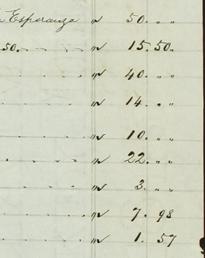 Esperanza " 50. " "
50. " 15. 50.
" 40. " "
" 14. " "
" 10. " "
" 22. " "
" 3. " "
" 7. 98
" 1. 57